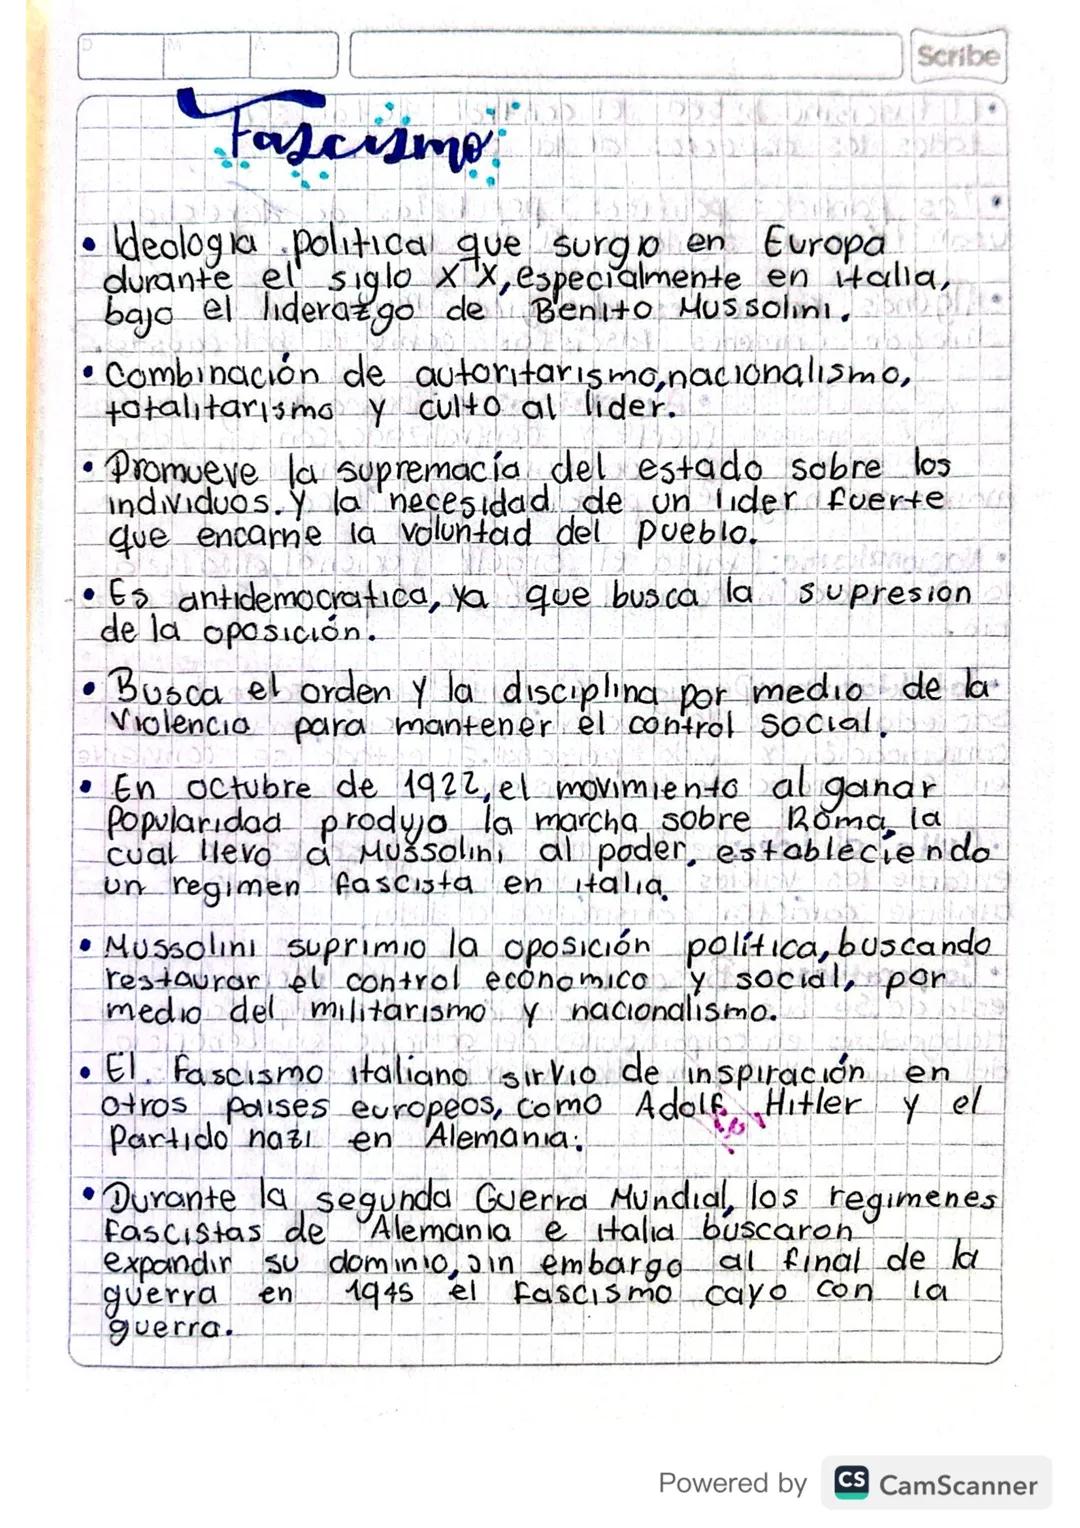 D M A
Scribe
Fascismo
• Ideologia politica que surgio en Europa
durante el siglo XX, especialmente en italia,
bajo el liderazgo de Benito Mussolini.
• Combinación de autoritarismo, nacionalismo,
totalitarismo y culto al lider.
• Promueve la supremacía del estado sobre los
individuos. y la necesidad de un lider fuerte
que encarne la voluntad del pueblo.
• Es antidemocratica, ya que busca la supresion
de la oposición.
• Busca el orden y la disciplina por medio de la
violencia para mantener el control social.
• En octubre de 1922, el movimiento al ganar
popularidad produjo la marcha sobre Roma, la
cual llevo a Mussolini al poder, estableciendo
un regimen fascista en italia.
• Mussolini suprimio la oposición política, buscando
restaurar el control economico y social, por
medio del militarismo y nacionalismo.
• El fascismo italiano sirvio de inspiración en
otros paises europeos, como Adolf Hitler y el
Partido nazi en Alemania.
• Durante la segunda Guerra Mundial, los regimenes
fascistas de Alemania e italia buscaron
expandir su dominio, sin embargo al final de la
guerra en 1945 el fascismo cayo con la
guerra.
Powered by CS CamScanner